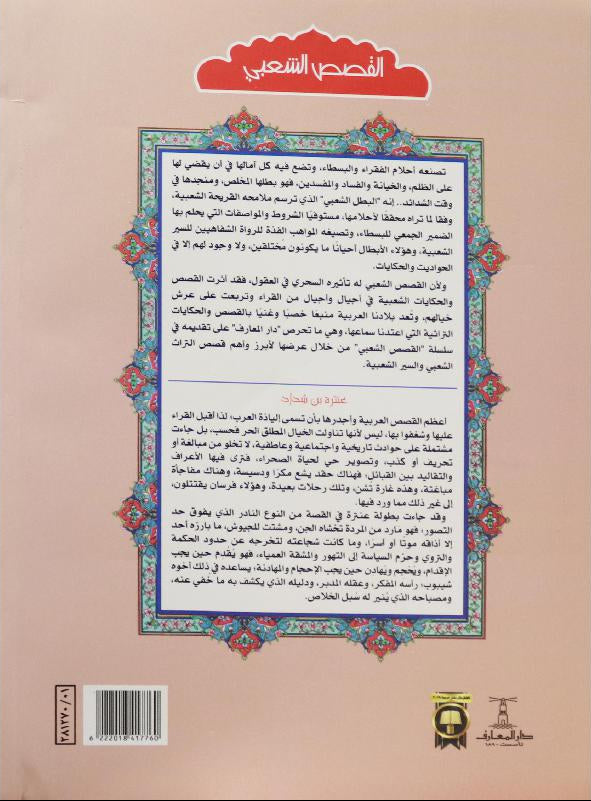 القصص الشعبي
تصنعه أحلام الفقراء والبسطاء، وتضع فيه كل آمالها في أن يقضي لها
على الظلم، والخيانة والفساد والمفسدين، فهو بطلها المخلص، ومنجدها في
وقت الشدائد.. إنه "البطل الشعبي" الذي ترسم ملامحه القريحة الشعبية،
وفقا لما تراه محققا لأحلامها، مستوفيًا الشروط والمواصفات التي يحلم بها
الضمير الجمعي للبسطاء، وتصيغه المواهب الفذة للرواة الشفاهيين للسير
الشعبية، وهؤلاء الأبطال أحيانًا ما يكونون مختلقين، ولا وجود لهم إلا في
الحواديت والحكايات.
ولأن القصص الشعبي له تأثيره السحري في العقول، فقد أثرت القصص
والحكايات الشعبية في أجيال وأجيال من القراء وتربعت على عرش
خيالهم، وتُعد بلادنا العربية منبعًا خصبًا وغنيًا بالقصص والحكايات
التراثية التي اعتدنا سماعها، وهي ما تحرص "دار المعارف" على تقديمه في
سلسلة "القصص الشعبي" من خلال عرضها لأبرز وأهم قصص التراث
الشعبي والسير الشعبية.
عنترة بن شداد
أعظم القصص العربية وأجدرها بأن تسمى إلياذة العرب؛ لذا أقبل القراء
عليها وشغفوا بها، ليس لأنها تناولت الخيال المطلق الحر فحسب، بل جاءت
مشتملة على حوادث تاريخية واجتماعية وعاطفية، لا تخلو من مبالغة أو
تحريف أو كذب، وتصوير حي لحياة الصحراء، فترى فيها الأعراف
والتقاليد بين القبائل، فهناك حقد يشع مكرًا ودسيسة، وهناك مفاجأة
مباغتة، وهذه غارة تشن، وتلك رحلات بعيدة، وهؤلاء فرسان يقتتلون،
إلى غير ذلك مما ورد فيها.
وقد جاءت بطولة عنترة في القصة من النوع النادر الذي يفوق حد
التصور؛ فهو مارد من المردة تخشاه الجن، ومشتت للجيوش، ما بارزه أحد
إلا أذاقه موتًا أو أسرا، وما كانت شجاعته لتخرجه عن حدود الحكمة
والتروي وحزم السياسة إلى التهور والمشقة العمياء، فهو يُقدم حين يجب
الإقدام، ويُحجم ويُهادن حين يجب الإحجام والمهادنة؛ يساعده في ذلك أخوه
شيبوب؛ رأسه المفكر، وعقله المدبر، ودليله الذي يكشف به ما خفي عنه،
ومصباحه الذي يُنير له سبل الخلاص.
٢٨١٢٧٠/٠١
6 222018 417760
دار المعارف
تأسست ١٨٩٠